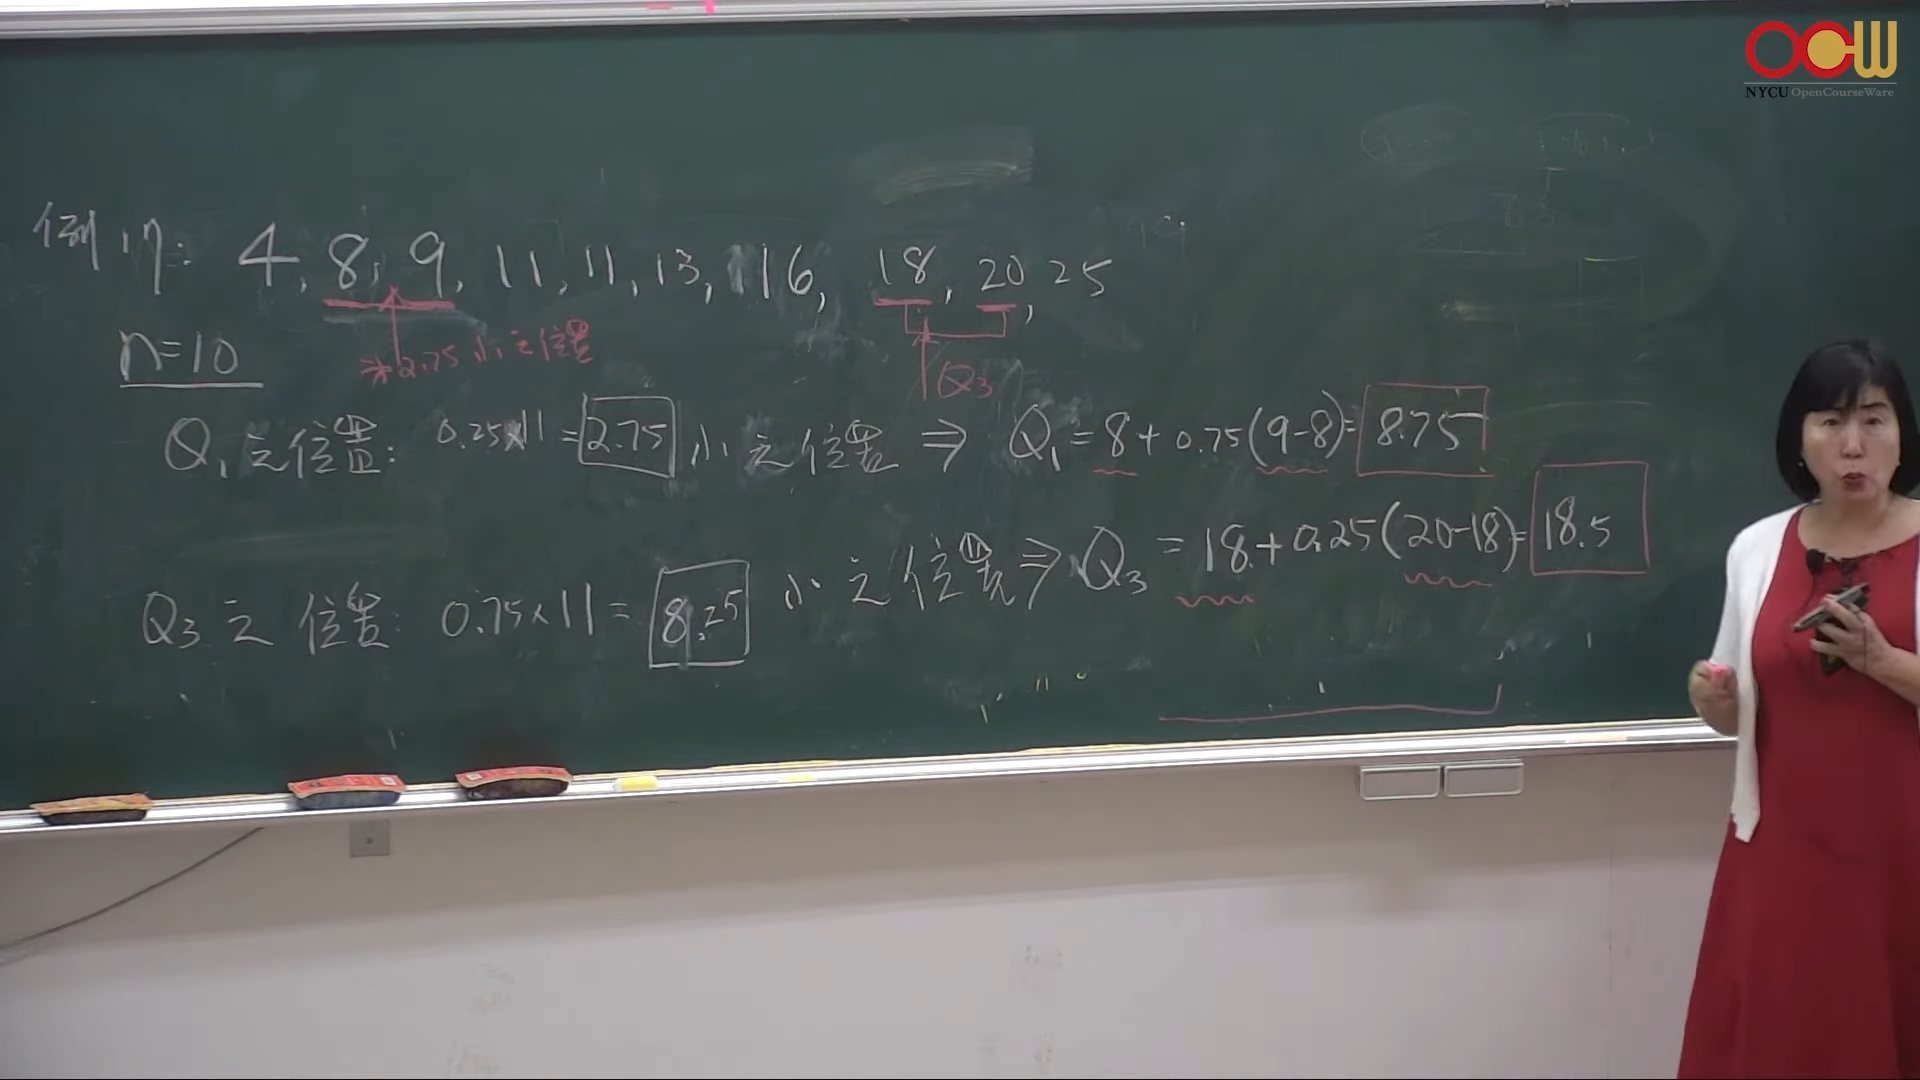 OCW
NYCU OpenCourseWare
例 17: 4, 8, 9, 11, 11, 13, 16, 18, 20, 25
n=10
第2.75小之位置
Q3
Q1之位置: 0.25×11=2.75小之位置 ⇒ Q1=8+0.75(9-8)=8.75
Q3之位置: 0.75×11=8.25小之位置⇒Q3=18+0.25(20-18)=18.5